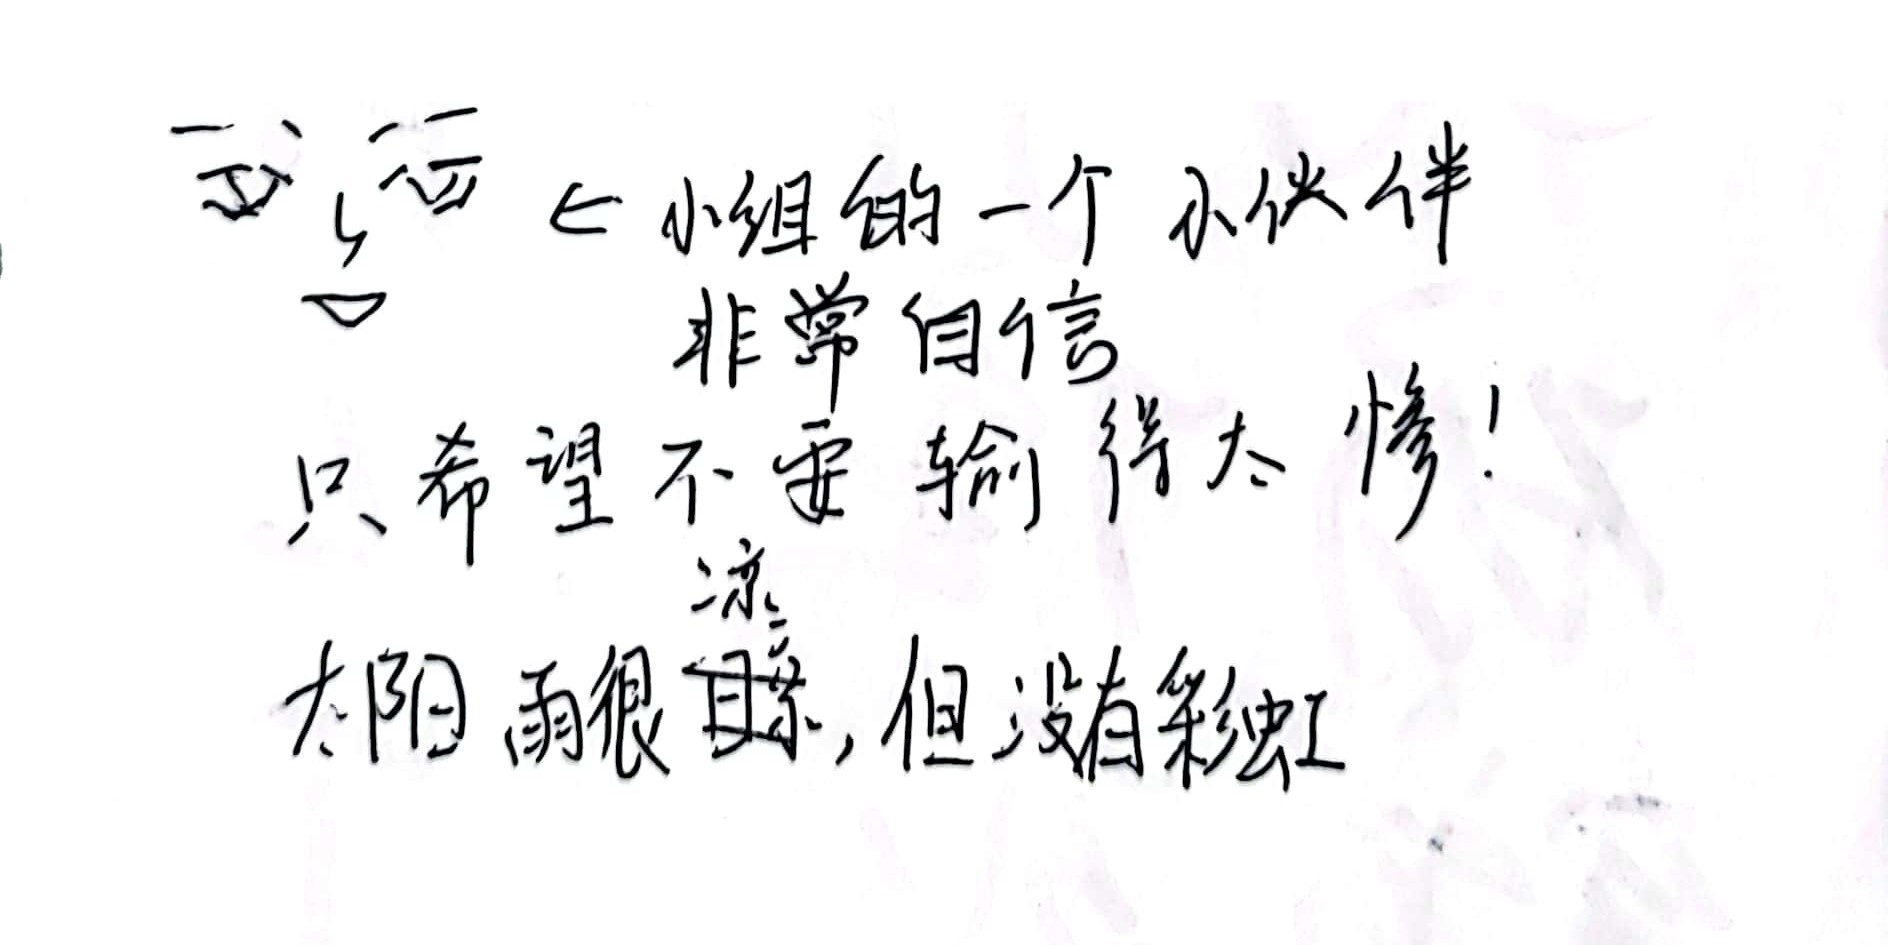 ← 小组的一个小伙伴
非常自信
只希望不要输得太惨！
凉
太阳雨很，但没有彩虹